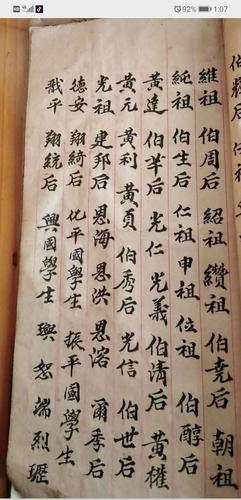 92% 1:07
維祖 伯周后 紹祖 纘祖 伯堯后 朝祖
純祖 伯生后 仁祖 申祖 位祖 伯醇后
黃達 后 光仁 光義 伯清后 黃權
黃元 黃利 黃貞 伯秀后 光信 伯世后
光祖 建邦后 恩海 恩洪 恩溶 爾季后
德安 翔綺后 化平國學生 振平國學生
戩平 翔統后 興國學生 璵 恕 端 烈